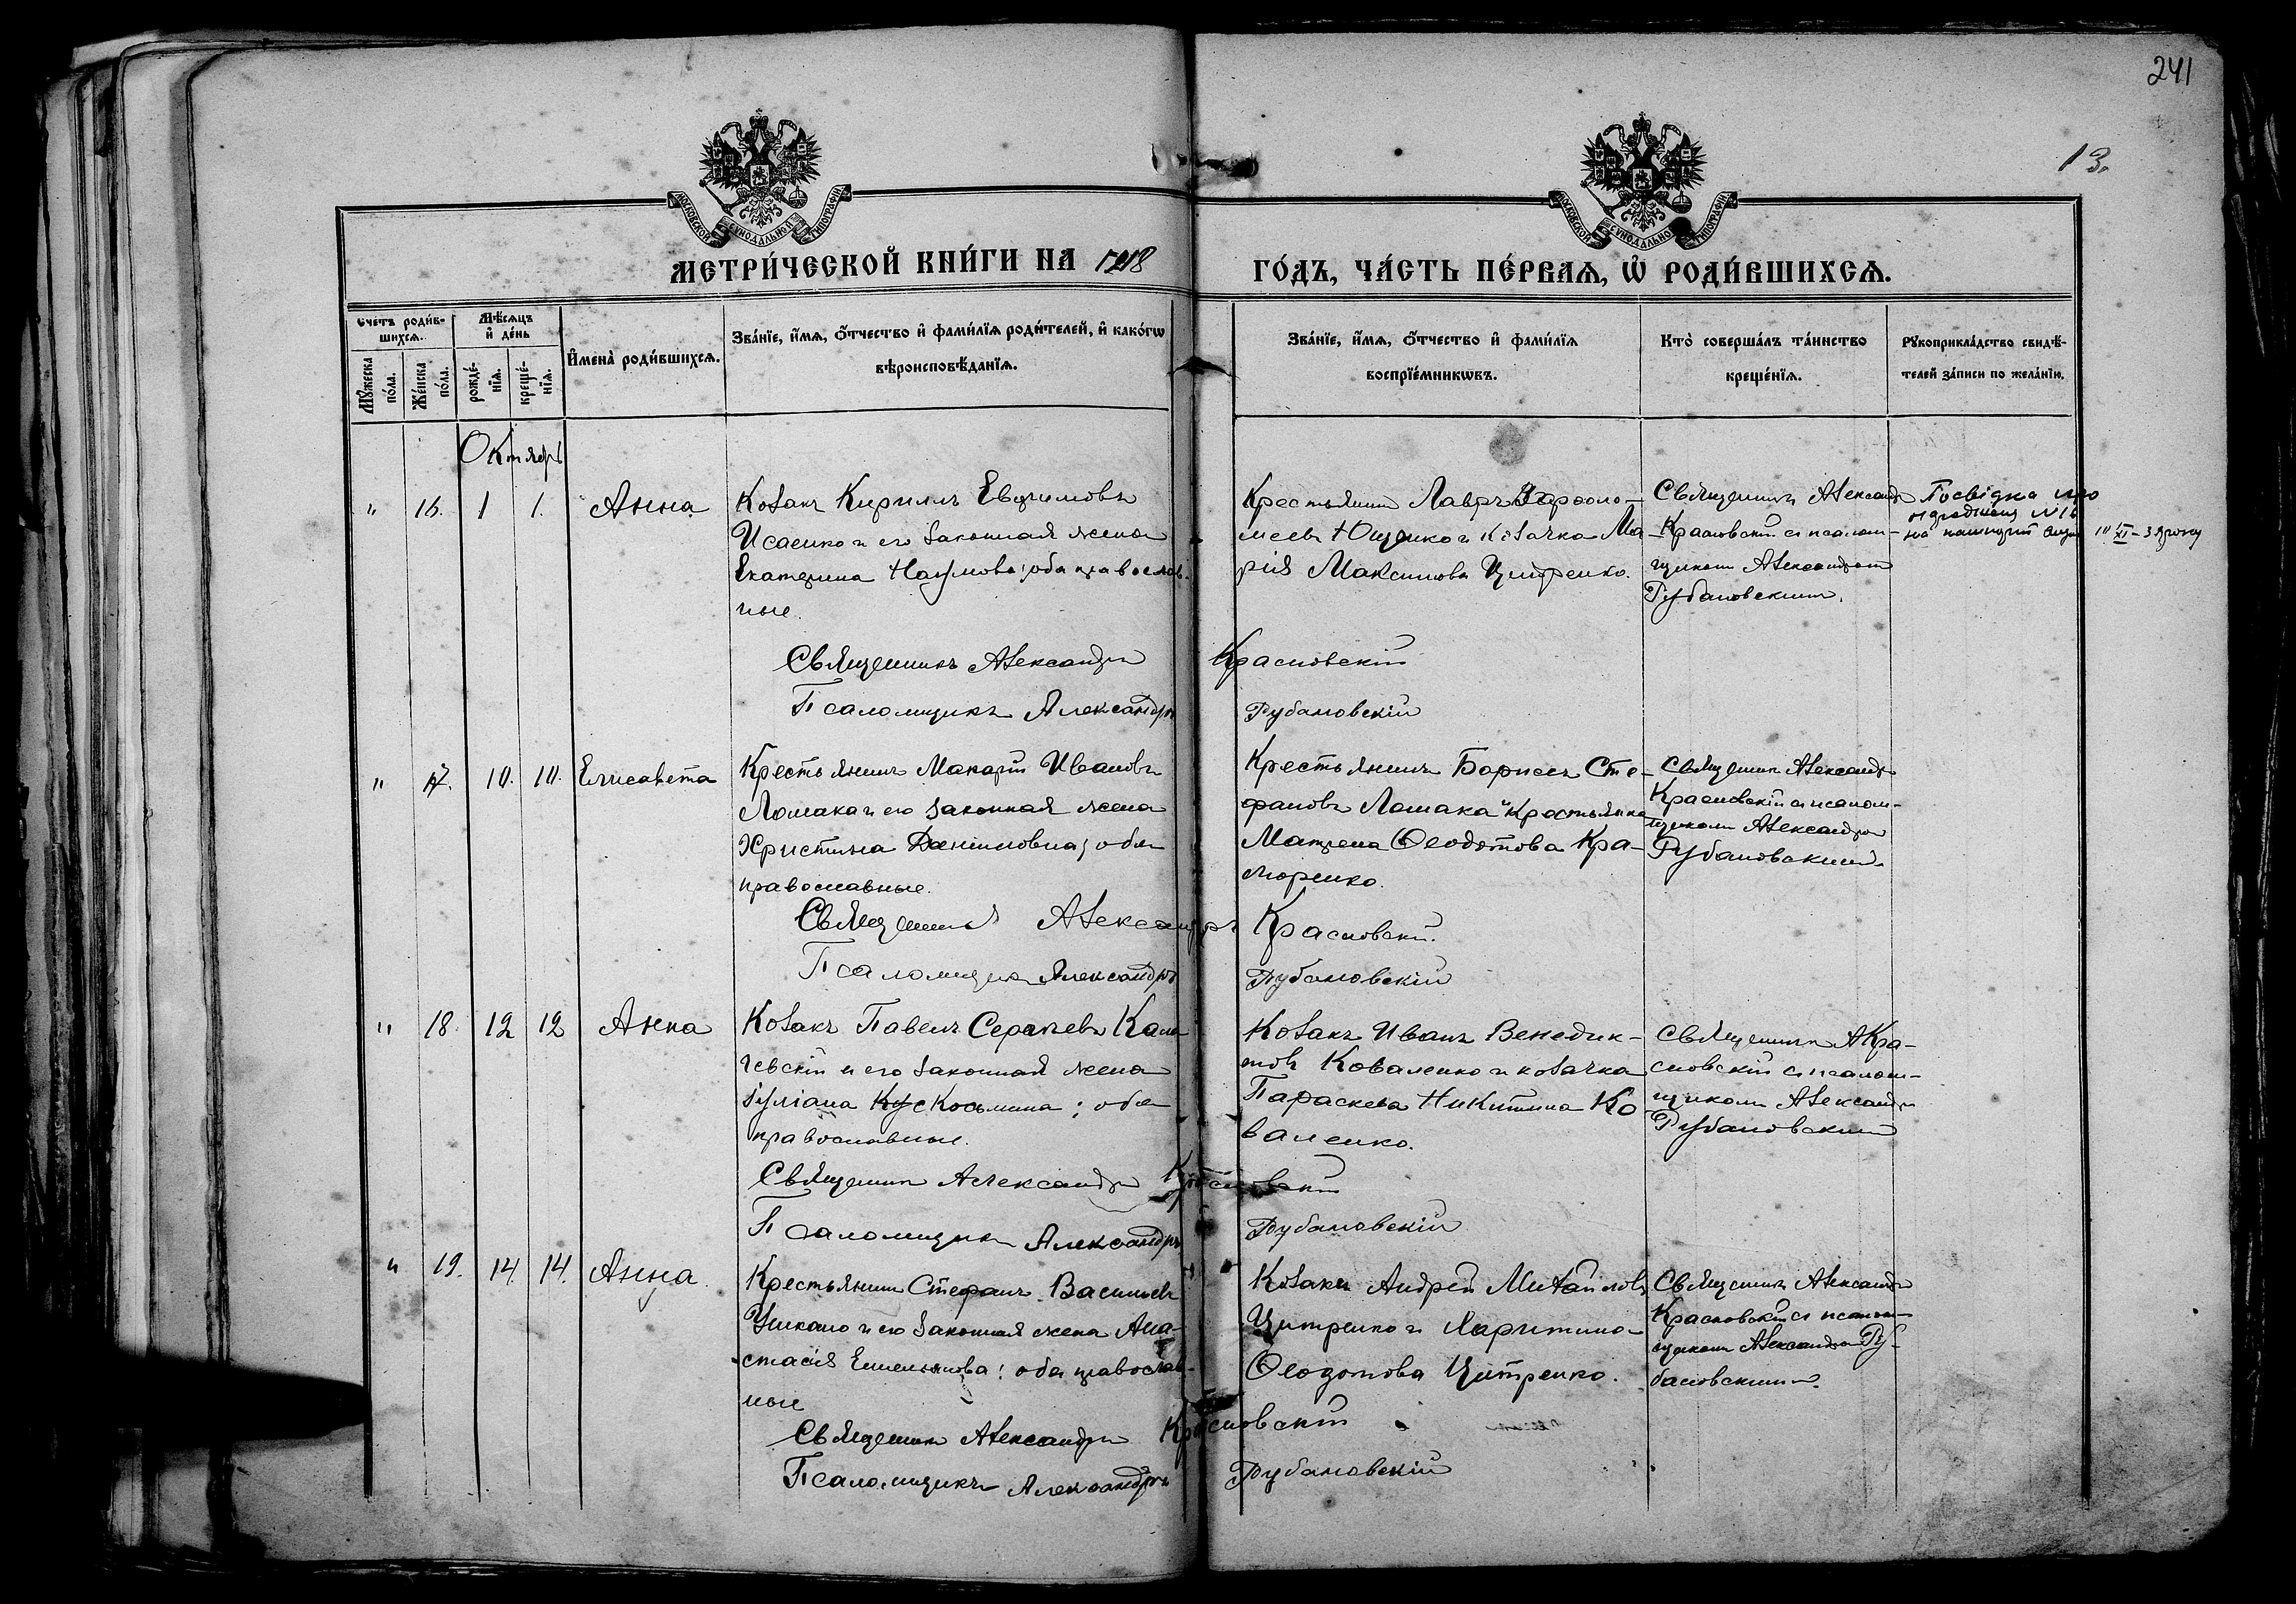 241
13.
МОСКОВСКОЙ СѴНОДАЛЬНОЙ ТИПОГРАФІИ
МОСКОВСКОЙ СѴНОДАЛЬНОЙ ТИПОГРАФІИ
МЕТРИ́ЧЕСКОЙ КНИ́ГИ НА 1918
ГО́ДЪ, ЧА́СТЬ ПЕ́РВАѦ, Ѡ҆ РОДИ́ВШИХСѦ.
Счетъ роди́в-
шихсѧ.
Мѣ́сѧцъ
и҆ де́нь
Мꙋ́жеска
по́ла.
Же́нска
по́ла.
рожде́-
нїѧ.
креще́-
нїѧ.
И҆мена̀ роди́вшихсѧ.
Зва́нїе, и҆́мѧ, ѻ҆́тчество и҆ фами́лїѧ роди́телей, и҆ како́гѡ
вѣроисповѣ́данїѧ.
Зва́нїе, и҆́мѧ, ѻ҆́тчество и҆ фами́лїѧ
воспрїе́мникѡвъ.
Кто̀ соверша́лъ та́инство
креще́нїѧ.
Рꙋкоприкла́дство свидѣ́-
телей за́писи по жела́нїю.
Октябрь
" 16. 1 1. Анна
Козакъ Кириллъ Евфимовъ
Исаенко и его законная жена
Екатерина Наумова; оба православ-
ные.
Крестьянинъ Лавръ Варфоло-
меевъ Ющенко и козачка Ма-
рія Максимова Цитренко.
Священникъ Александръ
Красновскій съ псалом-
щикомъ Александромъ
Рубановскимъ.
Посвідка про
народження №16
на паспорт
Священникъ Александръ Красновскій
Псаломщикъ Александръ Рубановскій
" 17. 10. 10. Елисавета
Крестьянинъ Макарій Ивановъ
Ломака и его законная жена
Христина Даниловна; оба
православные.
Крестьянинъ Борисъ Сте-
фановъ Ломака и крестьянка
Матрена Ѳеодотова Кра-
моренко.
Священникъ Александръ
Красновскій съ псалом-
щикомъ Александромъ
Рубановскимъ.
Священникъ Александръ Красновскій.
Псаломщикъ Александръ Рубановскій
" 18. 12 12 Анна
Козакъ Павелъ Сергіевъ Кала-
чевскій и его законная жена
Іуліана Кус Косьмина; оба
православные.
Козакъ Иванъ Венедик-
товъ Коваленко и козачка
Параскева Никитина Ко-
валенко.
Священникъ А Кра-
сновскій съ псалом-
щикомъ Александромъ
Рубановскимъ
Священникъ Александръ Красновскій
Псаломщикъ Александръ Рубановскій
" 19. 14. 14. Анна.
Крестьянинъ Стефанъ Васильевъ
и его законная жена Ана-
стасія Емельянова; оба православ-
ные
Козакъ Андрей Михайловъ
Цитренко и Харитина
Ѳеодотова Цитренко.
Священникъ Александръ
Красновскій съ псалом-
щикомъ Александромъ Ру-
бановскимъ.
Священникъ Александръ Красновскій
Псаломщикъ Александръ Рубановскій